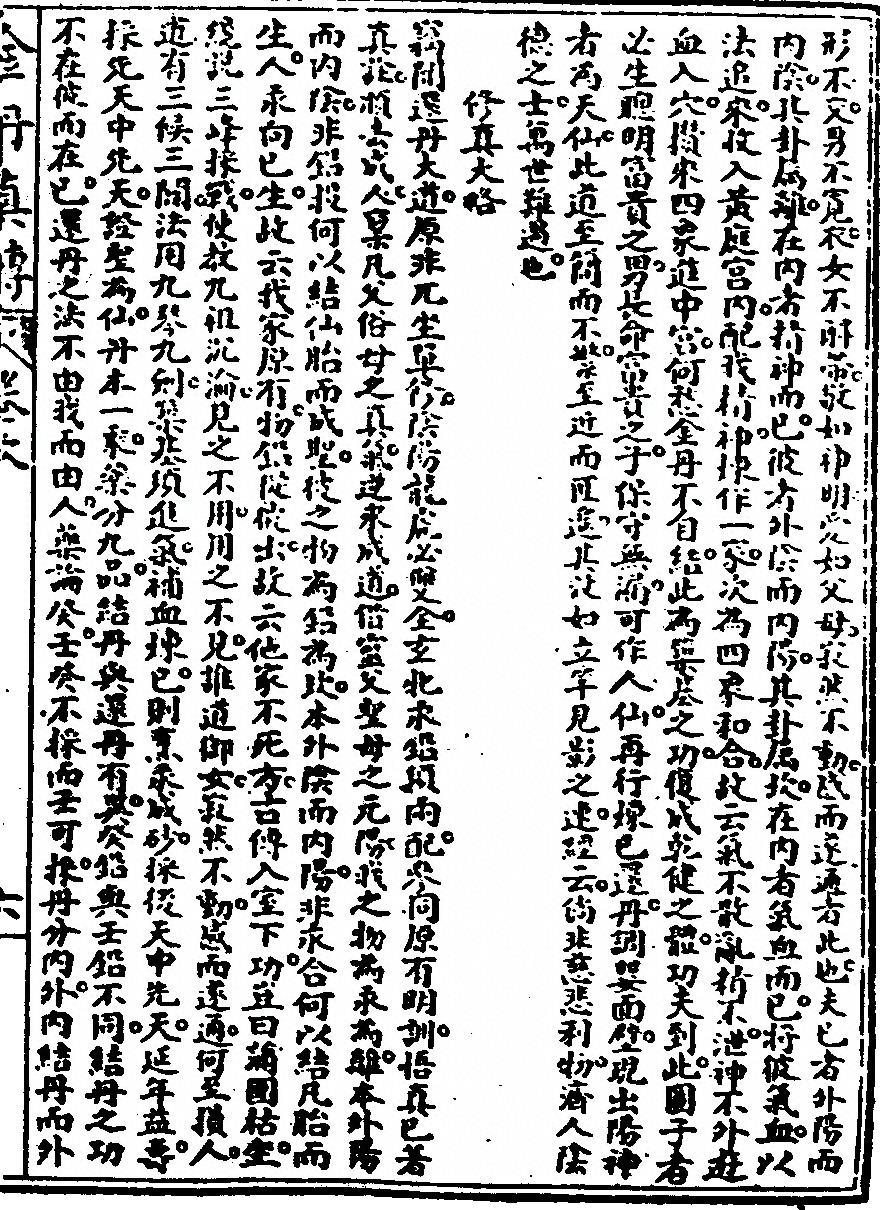 形不交男不寬衣女不解帶敬如神明愛如父母寂然不動感而遂通者此也夫已者外陽而
內陰其卦屬離在內者精神而已彼者外陰而內陽其卦屬坎在內者氣血而已將彼氣血以
法追來收入黃庭宮內配我精神煉作一家次為四象和合故云氣不散亂精不泄神不外遊
血入穴攢來四象進中宮何愁金丹不自結此為築基之功復成乾健之體功夫到此圖子者
必生聰明富貴之男長命富貴之子保守無漏可作人仙再行煉已還丹調嬰面壁現出陽神
者為天仙此道至簡而不繁至近而匪遙其法如立竿見影之速經云倘非慈悲利物濟人陰
德之士萬世難遇也
修真大略
竊聞還丹大道原非兀坐單修陰陽龍虎必雙全玄牝求鉛須兩配參同原有明訓悟真已著
真詮順去成人稟凡父俗母之真氣逆來成道借靈父聖母之元陽我之物為汞為離本外陽
而內陰非鉛投何以結仙胎而成聖彼之物為鉛為坎本外陰而內陽非汞合何以結凡胎而
生人汞向已生故云我家原有物鉛從彼出故云他家不死方古傳入室下功豈曰蒲團枯坐
纔說三峰採戰使教九祖沉淪見之不用用之不見誰道御女寂然不動感而遂通何至損人
道有三候三關法用九琴九劍築基須進氣補血煉已則烹汞成砂採後天中先天延年益壽
採先天中先天證聖為仙丹本一乘藥分九品結丹與還丹有異癸鉛與壬鉛不同結丹之功
不在彼而在已還丹之法不由我而由人藥論癸壬癸不採而壬可採丹分內外內結丹而外
金丹真傳
六